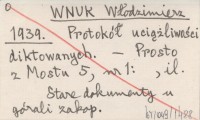 WNUK Włodzimierz
1939. Protokół uciążliwości
diktowanych. — Prosto
z Mostu 5, nr 1: , il.
Stare dokumenty u
górali zakop.